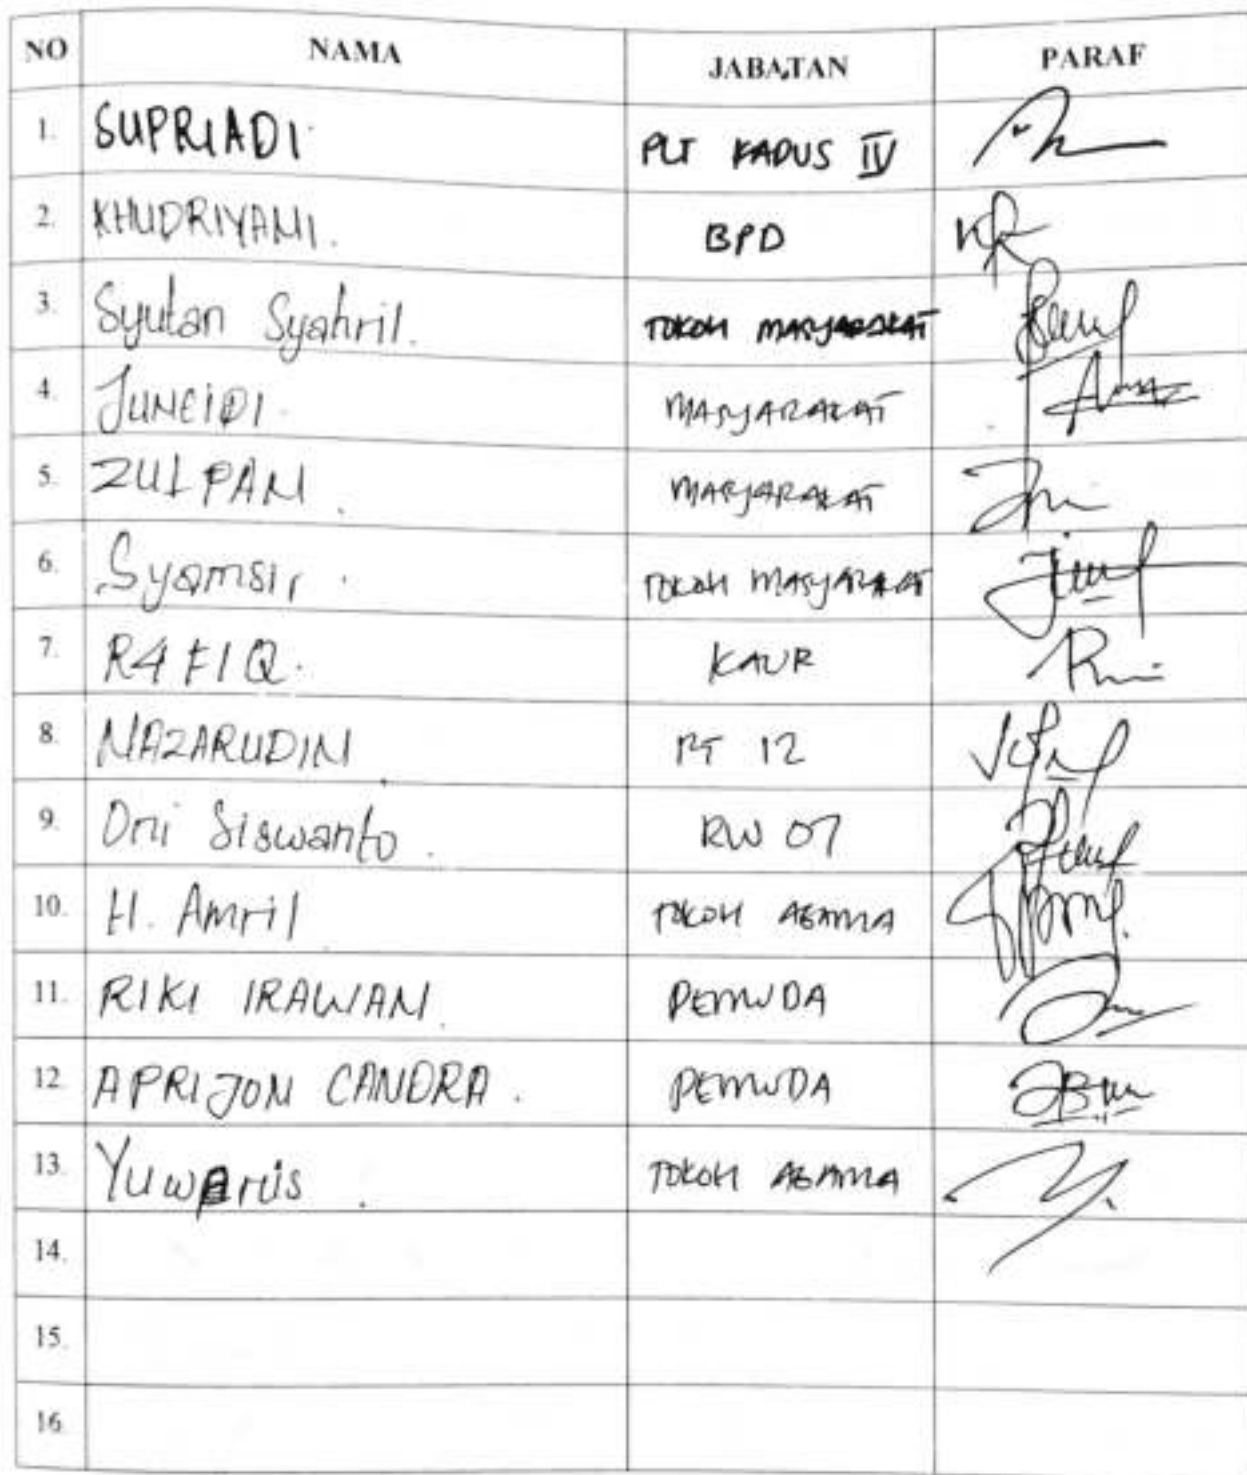 NO NAMA JABATAN PARAF
1. SUPRIADI PLT KADUS IV
2. KHUDRIYANI. BPD
3. Syutan Syahril. TOKOH MASYARAKAT
4. JUNEIDI. MASYARAKAT
5. ZULPAN. MASYARAKAT
6. Syamsir. TOKOH MASYARAKAT
7. RAFIQ. KAUR
8. NAZARUDIN RT 12
9. Siswanto. RW 07
10. H. Amril TOKOH AGAMA
11. RIKI IRAWAN. PEMUDA
12. APRIJON CANDRA. PEMUDA
13. TOKOH AGAMA
14.
15.
16.